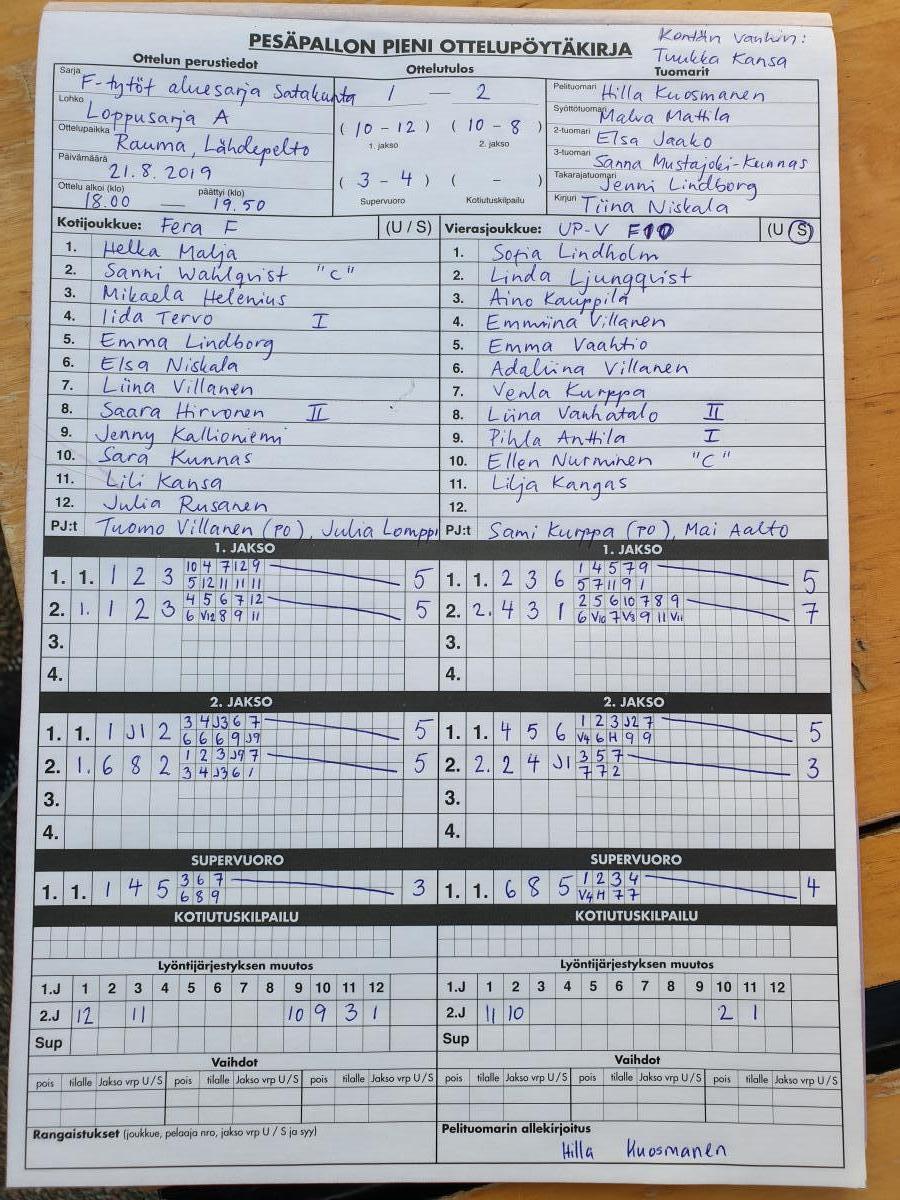 Kentän vanhin:
Tuukka Kansa
PESÄPALLON PIENI OTTELUPÖYTÄKIRJA
Ottelun perustiedot
Ottelutulos
Tuomarit
Sarja F-tytöt aluesarja Satakunta
1 — 2
Pelituomari Hilla Kuosmanen
Lohko Loppusarja A
(10 - 12) (10 - 8)
1. jakso 2. jakso
Syöttötuomari Malva Mattila
Ottelupaikka Rauma, Lähdepelto
2-tuomari Elsa Jaako
Päivämäärä 21.8.2019
3-tuomari Sanna Mustajoki-Kunnas
(3 - 4) ( - )
Supervuoro Kotiutuskilpailu
Takarajatuomari Jenni Lindborg
Ottelu alkoi (klo) 18.00 — päättyi (klo) 19.50
Kirjuri Tiina Niskala
Kotijoukkue: Fera F (U / S)
Vierasjoukkue: UP-V F10 (U / S)
1. Helka Malja
2. Sanni Wahlqvist "C"
3. Mikaela Helenius
4. Iida Tervo I
5. Emma Lindborg
6. Elsa Niskala
7. Liina Villanen
8. Saara Hirvonen II
9. Jenny Kallioniemi
10. Sara Kunnas
11. Lili Kansa
12. Julia Rusanen
PJ:t Tuomo Villanen (PO), Julia Lomppi
1. Sofia Lindholm
2. Linda Ljungqvist
3. Aino Kauppila
4. Emmiina Villanen
5. Emma Vaahtio
6. Adaliina Villanen
7. Venla Kurppa
8. Liina Vanhatalo II
9. Pihla Anttila I
10. Ellen Nurminen "C"
11. Lilja Kangas
12.
PJ:t Sami Kurppa (PO), Mai Aalto
1. JAKSO
1. 1. 1 2 3 10 4 7 12 9 5
5 12 11 11 11
2. 1. 1 2 3 4 5 6 7 12 5
6 V12 8 9 11
3.
4.
1. JAKSO
1. 1. 2 3 6 1 4 5 7 9 5
5 7 11 9 1
2. 2. 4 3 1 2 5 6 10 7 8 9 7
6 V10 7 V8 9 11 V11
3.
4.
2. JAKSO
1. 1. 1 J1 2 3 4 J3 6 7 5
6 6 6 9 J9
2. 1. 6 8 2 1 2 3 J9 7 5
3 4 J3 6 1
3.
4.
2. JAKSO
1. 1. 4 5 6 1 2 3 J2 7 5
V4 6 H 9 9
2. 2. 2 4 J1 3 5 7 3
7 7 2
3.
4.
SUPERVUORO
1. 1. 1 4 5 3 6 7 3
6 8 9
SUPERVUORO
1. 1. 6 8 5 1 2 3 4 4
V4 H 7 7
KOTIUTUSKILPAILU
KOTIUTUSKILPAILU
Lyöntijärjestyksen muutos
1.J 1 2 3 4 5 6 7 8 9 10 11 12
2.J 12 11 10 9 3 1
Sup
Lyöntijärjestyksen muutos
1.J 1 2 3 4 5 6 7 8 9 10 11 12
2.J 11 10 2 1
Sup
Vaihdot
pois tilalle Jakso vrp U / S pois tilalle Jakso vrp U / S pois tilalle Jakso vrp U / S
Vaihdot
pois tilalle Jakso vrp U / S pois tilalle Jakso vrp U / S pois tilalle Jakso vrp U / S
Rangaistukset (joukkue, pelaaja nro, jakso vrp U / S ja syy)
Pelituomarin allekirjoitus
Hilla Kuosmanen